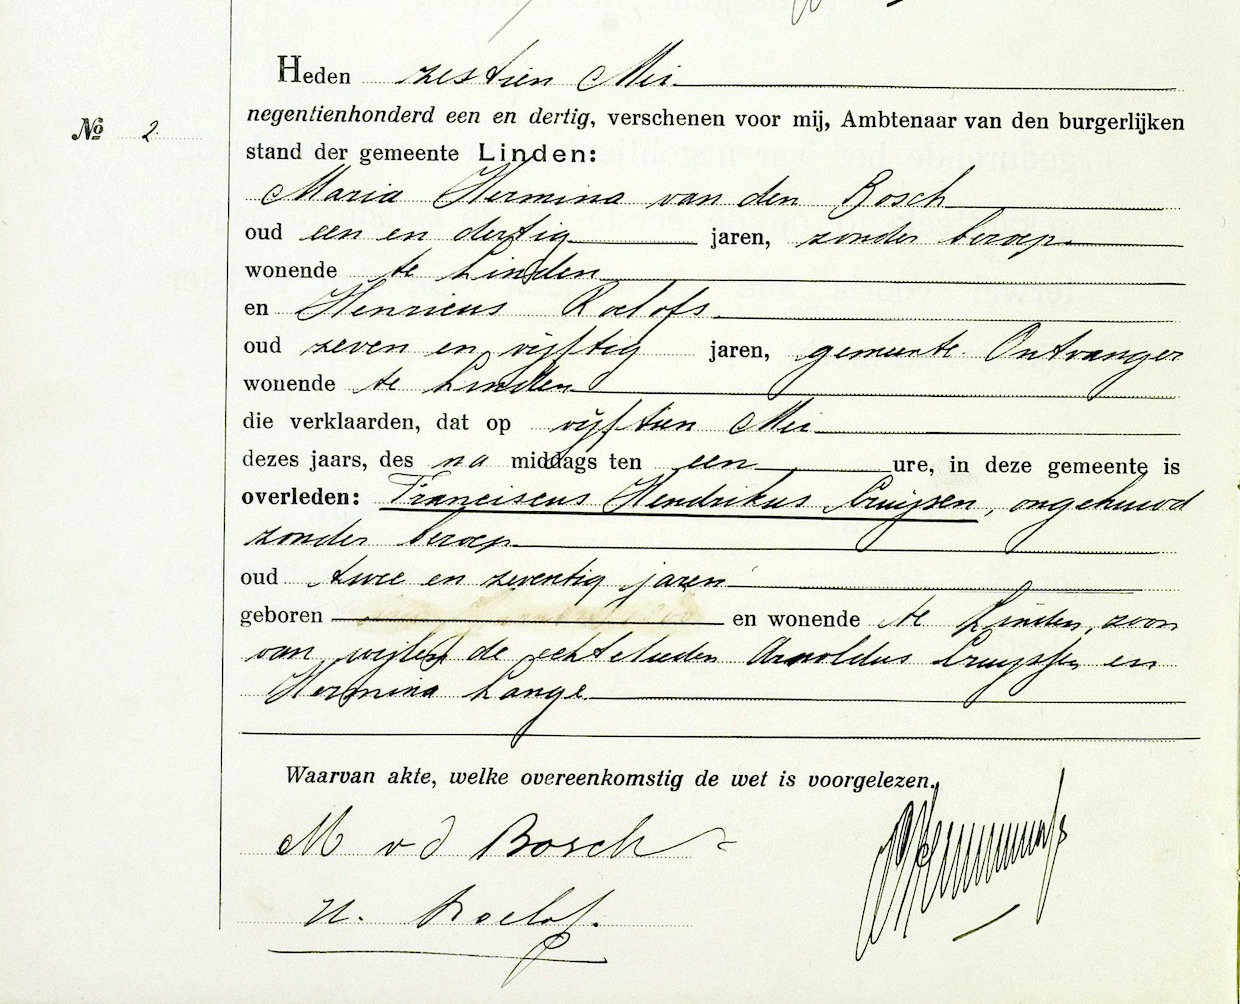 Heden zestien Mei
negentienhonderd een en dertig, verschenen voor mij, Ambtenaar van den burgerlijken
№ 2.
stand der gemeente Linden:
Maria Hermina van den Bosch
oud een en dertig jaren, zonder beroep
wonende te Linden
en Henricus Roelofs
oud zeven en vijftig jaren, gemeente Ontvanger
wonende te Linden
die verklaarden, dat op vijftien Mei
dezes jaars, des na middags ten een ure, in deze gemeente is
overleden: Franciscus Hendrikus Cruijsen, ongehuwd
zonder beroep
oud twee en zeventig jaren
geboren en wonende te Linden, zoon
van wijlen de echtelieden Arnoldus Cruijssen en
Hermina Lange
Waarvan akte, welke overeenkomstig de wet is voorgelezen.
M v d Bosch
H. Roelofs.